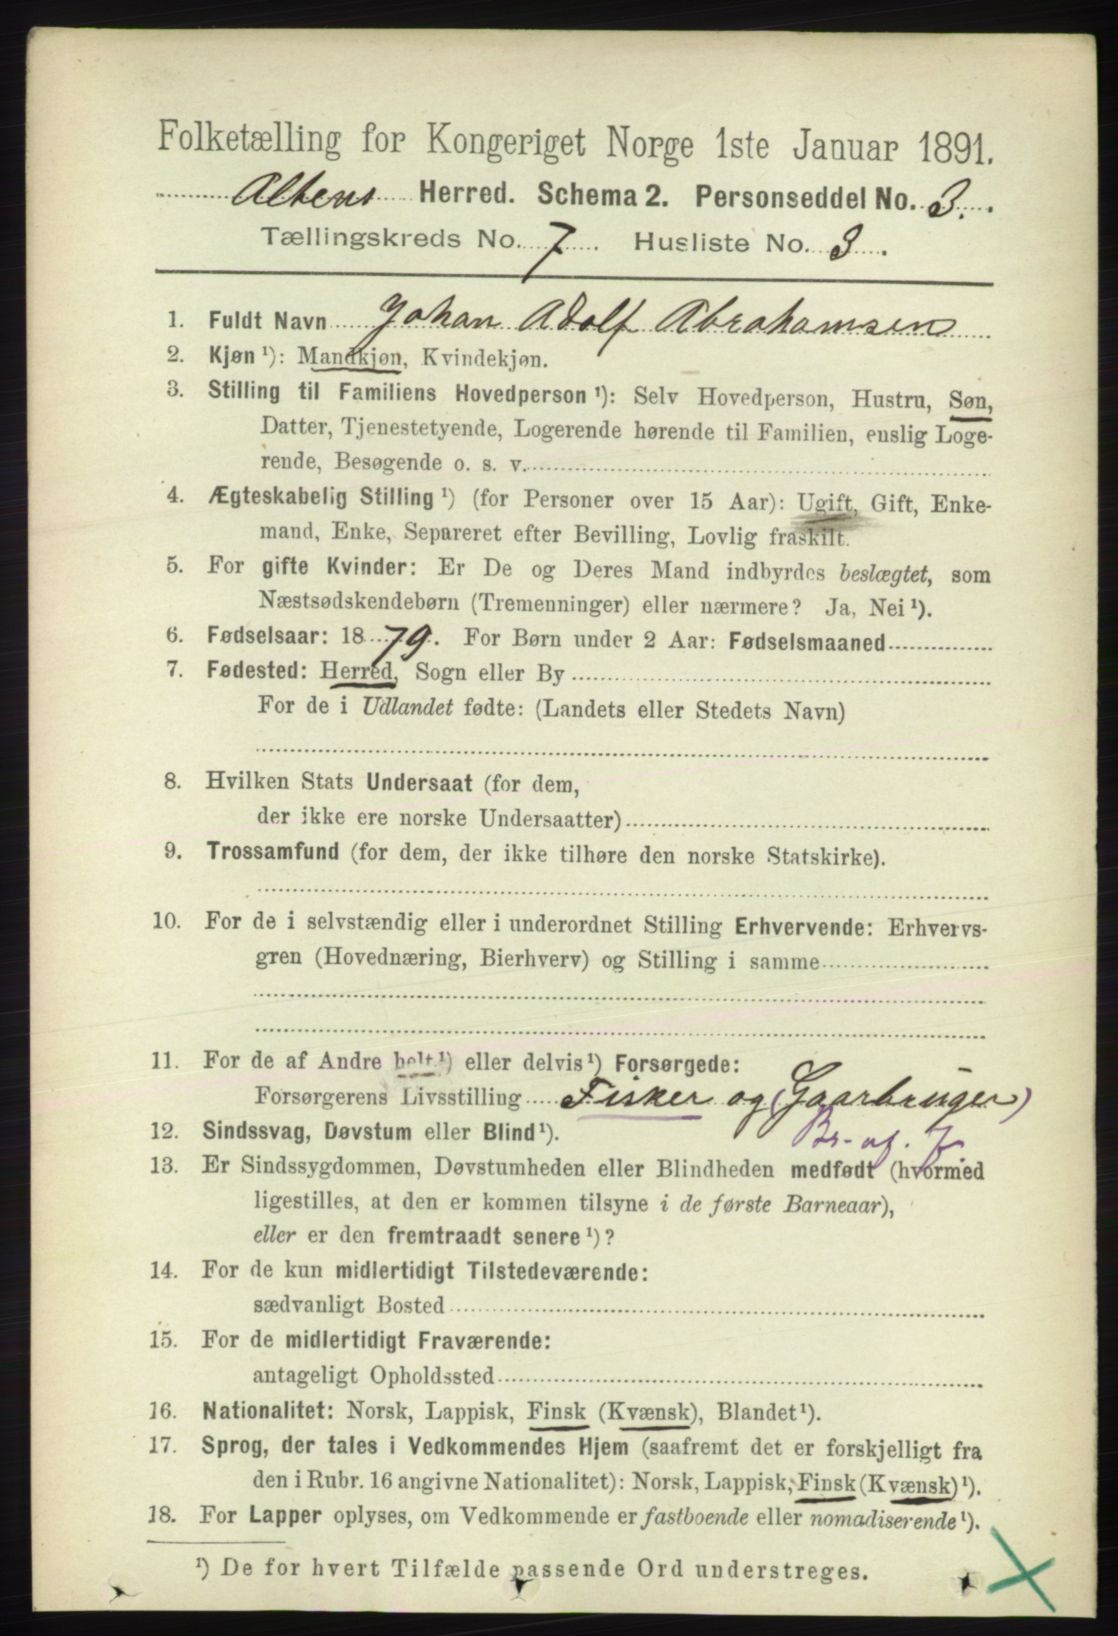 Folketælling for Kongeriget Norge 1ste Januar 1891.
Altens Herred. Schema 2. Personseddel No. 3.
Tællingskreds No. 7. Husliste No. 3.
1. Fuldt Navn Johan Adolf Abrahamsen
2. Kjøn ¹): Mandkjøn, Kvindekjøn.
3. Stilling til Familiens Hovedperson ¹): Selv Hovedperson, Hustru, Søn,
Datter, Tjenestetyende, Logerende hørende til Familien, enslig Loge-
rende, Besøgende o. s. v.
4. Ægteskabelig Stilling ¹) (for Personer over 15 Aar): Ugift, Gift, Enke-
mand, Enke, Separeret efter Bevilling, Lovlig fraskilt.
5. For gifte Kvinder: Er De og Deres Mand indbyrdes beslægtet, som
Næstsødskendebørn (Tremenninger) eller nærmere? Ja, Nei ¹).
6. Fødselsaar: 1879. For Børn under 2 Aar: Fødselsmaaned
7. Fødested: Herred, Sogn eller By
For de i Udlandet fødte: (Landets eller Stedets Navn)
8. Hvilken Stats Undersaat (for dem,
der ikke ere norske Undersaatter)
9. Trossamfund (for dem, der ikke tilhøre den norske Statskirke).
10. For de i selvstændig eller i underordnet Stilling Erhvervende: Erhvervs-
gren (Hovednæring, Bierhverv) og Stilling i samme
11. For de af Andre helt ¹) eller delvis ¹) Forsørgede:
Forsørgerens Livsstilling Fisker og (Gaarbruger)
Br. af. J
12. Sindssvag, Døvstum eller Blind ¹).
13. Er Sindssygdommen, Døvstumheden eller Blindheden medfødt (hvormed
ligestilles, at den er kommen tilsyne i de første Barneaar),
eller er den fremtraadt senere ¹)?
14. For de kun midlertidigt Tilstedeværende:
sædvanligt Bosted
15. For de midlertidigt Fraværende:
antageligt Opholdssted
16. Nationalitet: Norsk, Lappisk, Finsk (Kvænsk), Blandet ¹).
17. Sprog, der tales i Vedkommendes Hjem (saafremt det er forskjelligt fra
den i Rubr. 16 angivne Nationalitet): Norsk, Lappisk, Finsk (Kvænsk) ¹).
18. For Lapper oplyses, om Vedkommende er fastboende eller nomadiserende ¹).
¹) De for hvert Tilfælde passende Ord understreges.